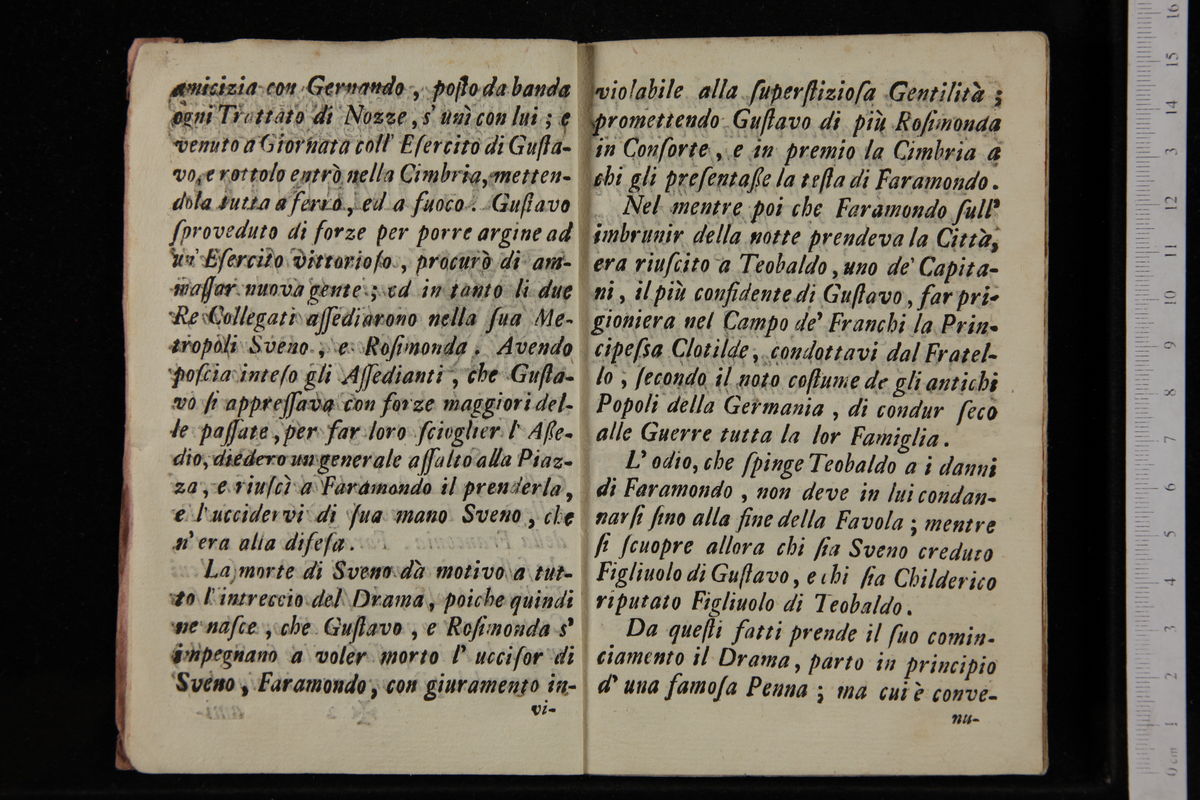 amicizia con Gernando, poſto da banda
ogni Trattato di Nozze, s' unì con lui; e
venuto a Giornata coll' Eſercito di Guſta-
vo, e rottolo entrò nella Cimbria, metten-
dola tutta a ferro, ed a fuoco. Guſtavo
ſproveduto di forze per porre argine ad
un' Eſercito vittorioſo, procurò di am-
maſſar nuova gente; ed in tanto li due
Re Collegati aſſediarono nella ſua Me-
tropoli Sveno, e Roſimonda. Avendo
poſcia inteſo gli Aſſedianti, che Guſta-
vo ſi appreſſava con forze maggiori del-
le paſſate, per far loro ſcioglier l' Aße-
dio, diedero un generale aſſalto alla Piaz-
za, e riuſcì a Faramondo il prenderla,
e l'uccidervi di ſua mano Sveno, che
n'era alla difeſa.
La morte di Sveno dà motivo a tut-
to l'intreccio del Drama, poiche quindi
ne naſce, che Guſtavo, e Roſimonda s'
impegnano a voler morto l' ucciſor di
Sveno, Faramondo, con giuramento in-
vi-
violabile alla ſuperſtizioſa Gentilità;
promettendo Guſtavo di più Roſimonda
in Conſorte, e in premio la Cimbria a
chi gli preſentaße la teſta di Faramondo.
Nel mentre poi che Faramondo ſull'
imbrunir della notte prendeva la Città,
era riuſcito a Teobaldo, uno de' Capita-
ni, il più confidente di Guſtavo, far pri-
gioniera nel Campo de' Franchi la Prin-
cipeſsa Clotilde, condottavi dal Fratel-
lo, ſecondo il noto coſtume de gli antichi
Popoli della Germania, di condur ſeco
alle Guerre tutta la lor Famiglia.
L' odio, che ſpinge Teobaldo a i danni
di Faramondo, non deve in lui condan-
narſi ſino alla fine della Favola; mentre
ſi ſcuopre allora chi ſia Sveno creduto
Figliuolo di Guſtavo, e chi ſia Childerico
riputato Figliuolo di Teobaldo.
Da queſti fatti prende il ſuo comin-
ciamento il Drama, parto in principio
d' una famoſa Penna; ma cui è conve-
nu-
0 cm 1 2 3 4 5 6 7 8 9 10 11 12 3 14 15 16